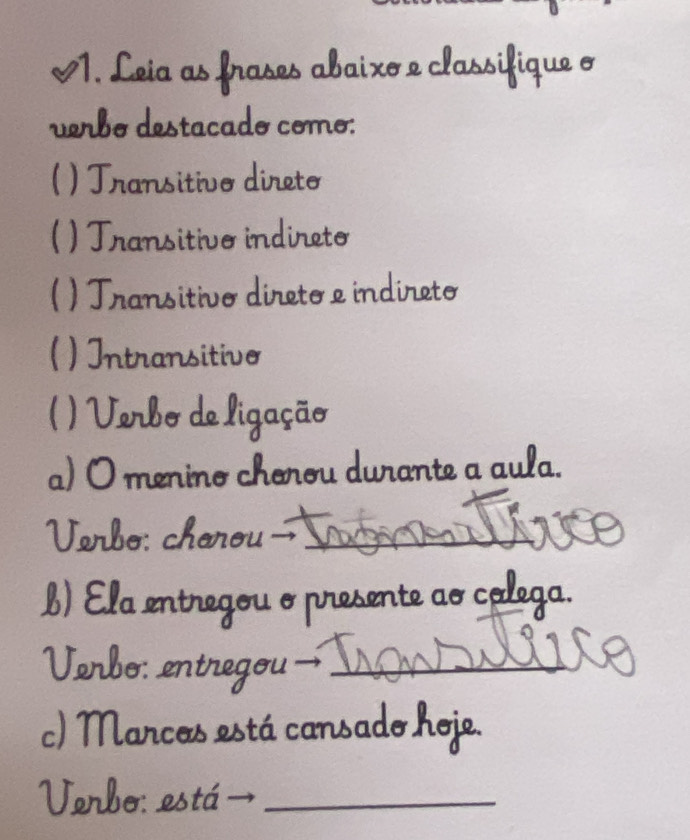 1. Leia as frases abaixo e classifique o
verbo destacado como:
( ) Transitivo direto
( ) Transitivo indireto
( ) Transitivo direto e indireto
( ) Intransitivo
( ) Verbo de ligação
a) O menino chorou durante a aula.
Verbo: chorou →
b) Ela entregou o presente ao colega.
Verbo: entregou →
c) Marcos está cansado hoje.
Verbo: está →